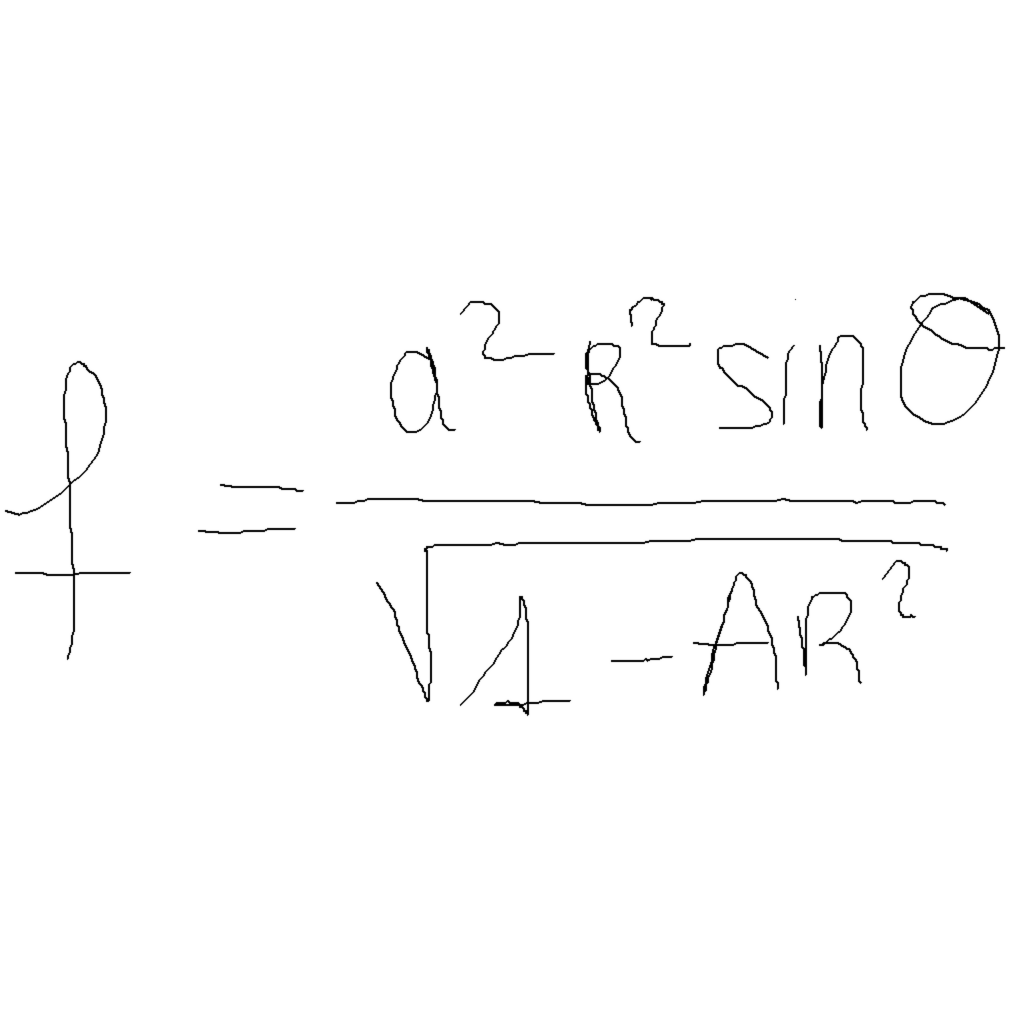 f = \frac{a^2 R^2 \sin θ}{\sqrt{1 - AR^2}}